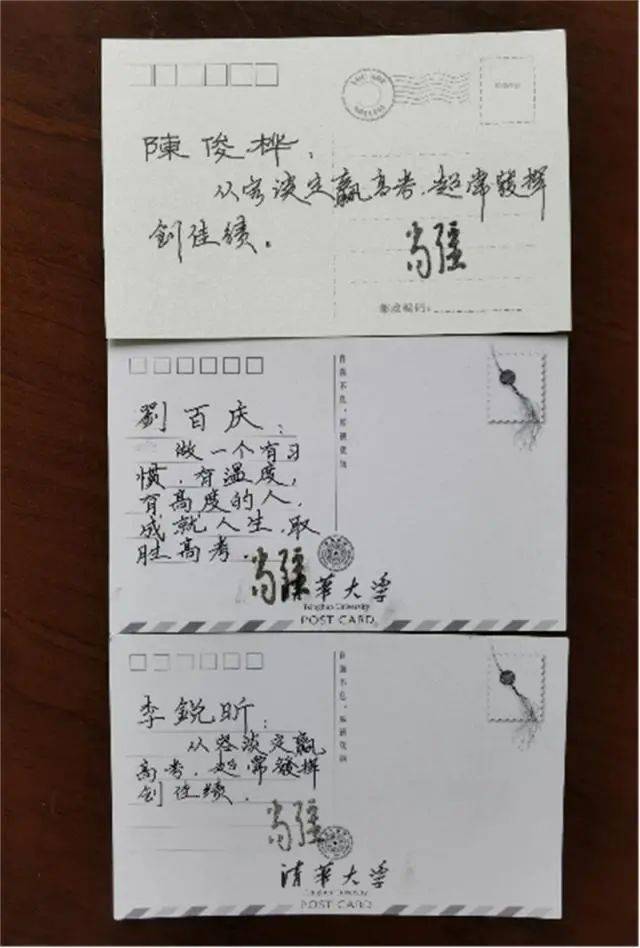 陳俊桦，
从容淡定赢高考，超常發揮
創佳績。
肖疆
邮政编码：
劉百庆：
做一个有习
惯，有温度，
有高度的人，
成就人生，取
胜高考．
肖疆
自强不息，厚德载物
清華大学
Tsinghua University
POST CARD
李鋭昕：
从容淡定赢
高考，超常發揮
創佳績．
肖疆
自强不息，厚德载物
清華大学
Tsinghua University
POST CARD